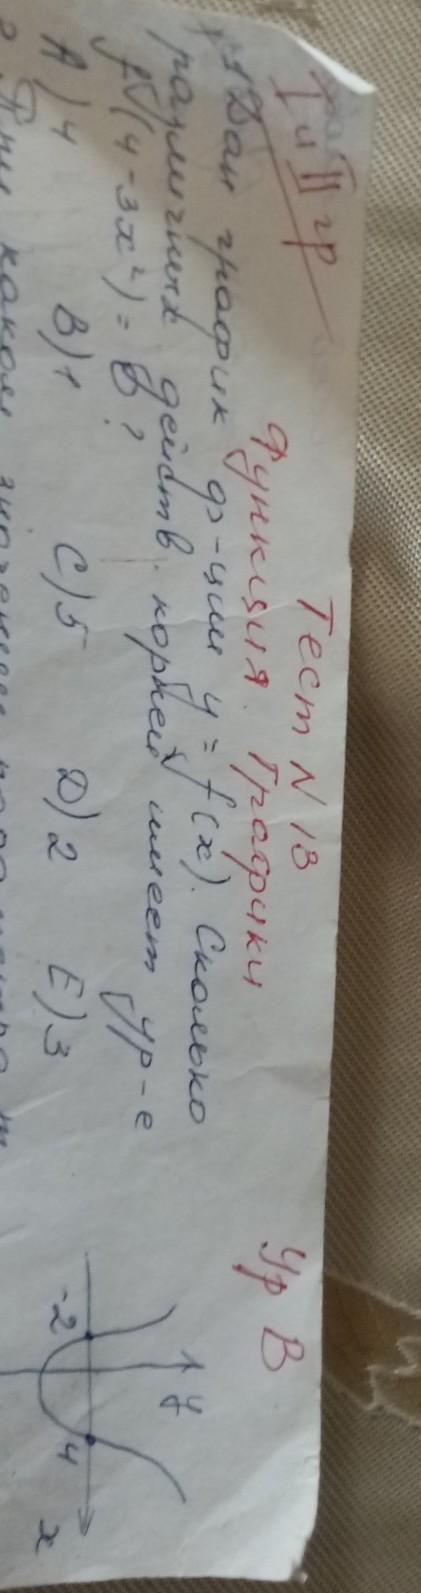 I и II гр
Тест N 13
Функция. Графики
Ур В
1. Дан график ф-ции y = f(x). Сколько
различных действ. корней имеет ур-е
f(4-3x²) = 0?
A) 4 B) 1 C) 5 D) 2 E) 3
y
-2 4 x
При каком значении параметра m